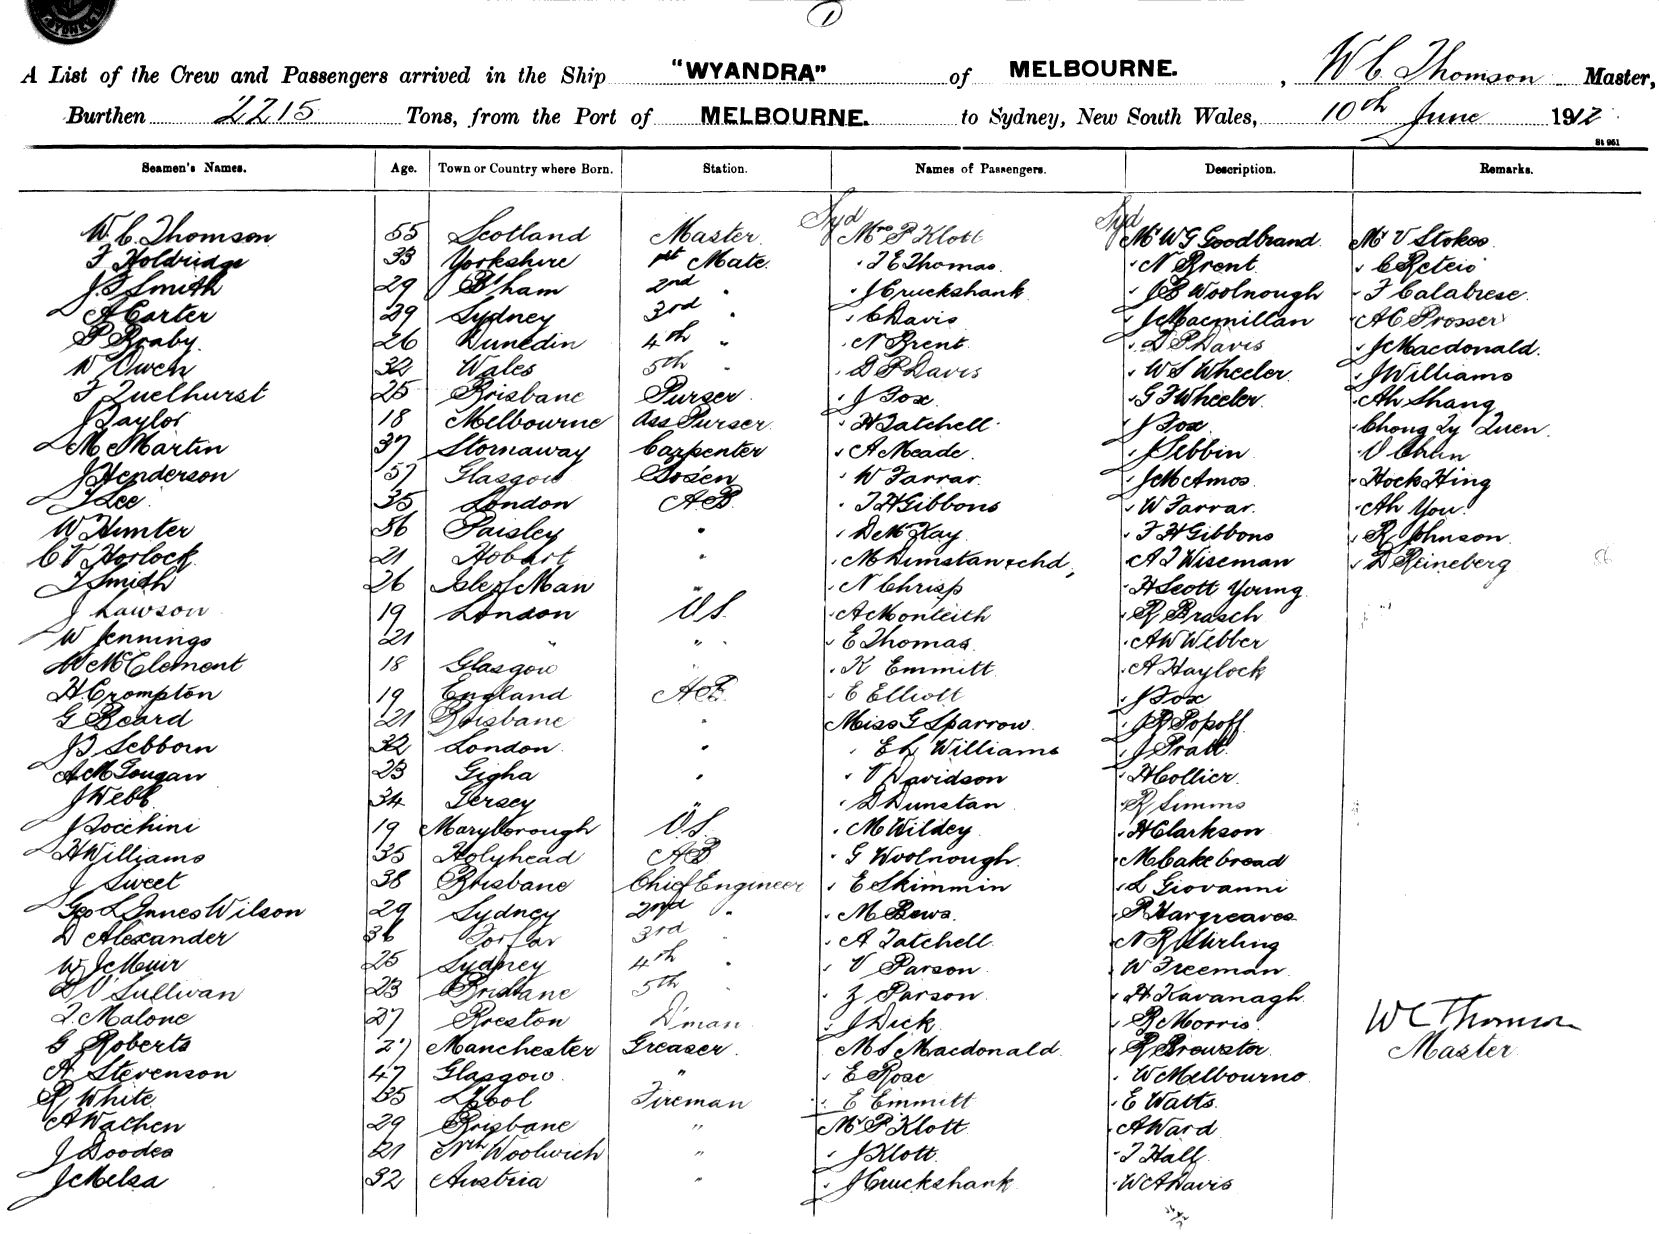 SYDNEY
1
A List of the Crew and Passengers arrived in the Ship "WYANDRA" of MELBOURNE. , W C Thomson Master,
Burthen 2215 Tons, from the Port of MELBOURNE. to Sydney, New South Wales, 10th June 1912
St 951
Seamen's Names. Age. Town or Country where Born. Station. Names of Passengers. Description. Remarks.
Syd Syd
W. C. Thomson 55 Scotland Master Mrs P Klott Mr W G Goodbrand Mr V Stokes
F Holdridge 33 Yorkshire 1st Mate " F E Thomas " N Brent " C Reteio
J S Smith 29 B'ham 2nd " " J Cruckshank " J B Woolnough " F Calabrese
A Carter 29 Sydney 3rd " " C Davis " J Macmillan " A C Prosser
P Braby 26 Dunedin 4th " " N Brent " D P Davis " J Macdonald.
N Owen 32 Wales 5th " " D P Davis " W S Wheeler " J Williams
F Quelhurst 25 Brisbane Purser " J Fox " G F Wheeler " Ah Shang
J Taylor 18 Melbourne Ass Purser " H Tatchell " J Fox " Chong Ly Quen
M Martin 37 Stornaway Carpenter " A Meade " J Sebbin " O Chin
J Henderson 57 Glasgow Bosen " W Farrar " J McAmos " Hock Hing
T Lee 35 London AB " F H Gibbons " W Farrar " Ah You
W Hunter 36 Paisley " " D McKay " F H Gibbons " R Johnson
C V Horlock 21 Hobart " " M Dunstan + chd " A J Wiseman " D Reineberg
T Smith 26 Isle of Man " " N Chrisp " H Scott Young
J Lawson 19 London O.S. " A Monteith " R Brasch
W Jennings 21 " " " E Thomas " A W Webber
W McClement 18 Glasgow " " K Emmitt " A Haylock
H Crompton 19 England AB " E Elliott " J Fox
G Beard 21 Brisbane " Miss G Sparrow " J R Popoff
J B Sebborn 32 London " " E L Williams " J Pratt
A McGougan 23 Gigha " " V Davidson " H Collier
J Webb 34 Jersey " " D Dunstan " R Simms
J Bocchini 19 Maryborough O.S. " M Wildey " H Clarkson
H Williams 35 Holyhead AB " G Woolnough " M Cakebread
J Sweet 38 Brisbane Chief Engineer " E Skimmin " L Giovanni
Geo L Innes Wilson 29 Sydney 2nd " " M Bews " P Hargreaves
D Alexander 36 Forfar 3rd " " A Tatchell " N R Stirling
W J Muir 25 Sydney 4th " " V Parson " W Freeman
D O'Sullivan 23 Brisbane 5th " " Z Parson " H Kavanagh
T. Malone 27 Preston D'man " J Dick " R Morris
G Roberts 27 Manchester Greaser " M S Macdonald " R Brewster
A Stevenson 47 Glasgow " " E Rose " W Melbourne
R White 35 L'pool Fireman " E Emmitt " E Watts
A Wathen 29 Brisbane " Mr P Klott " A Ward
J Doodes 21 Nth Woolwich " " J Klott " T Hall
J Melsa 32 Austria " " J Cruckshank " W A Davis
W C Thomson
Master